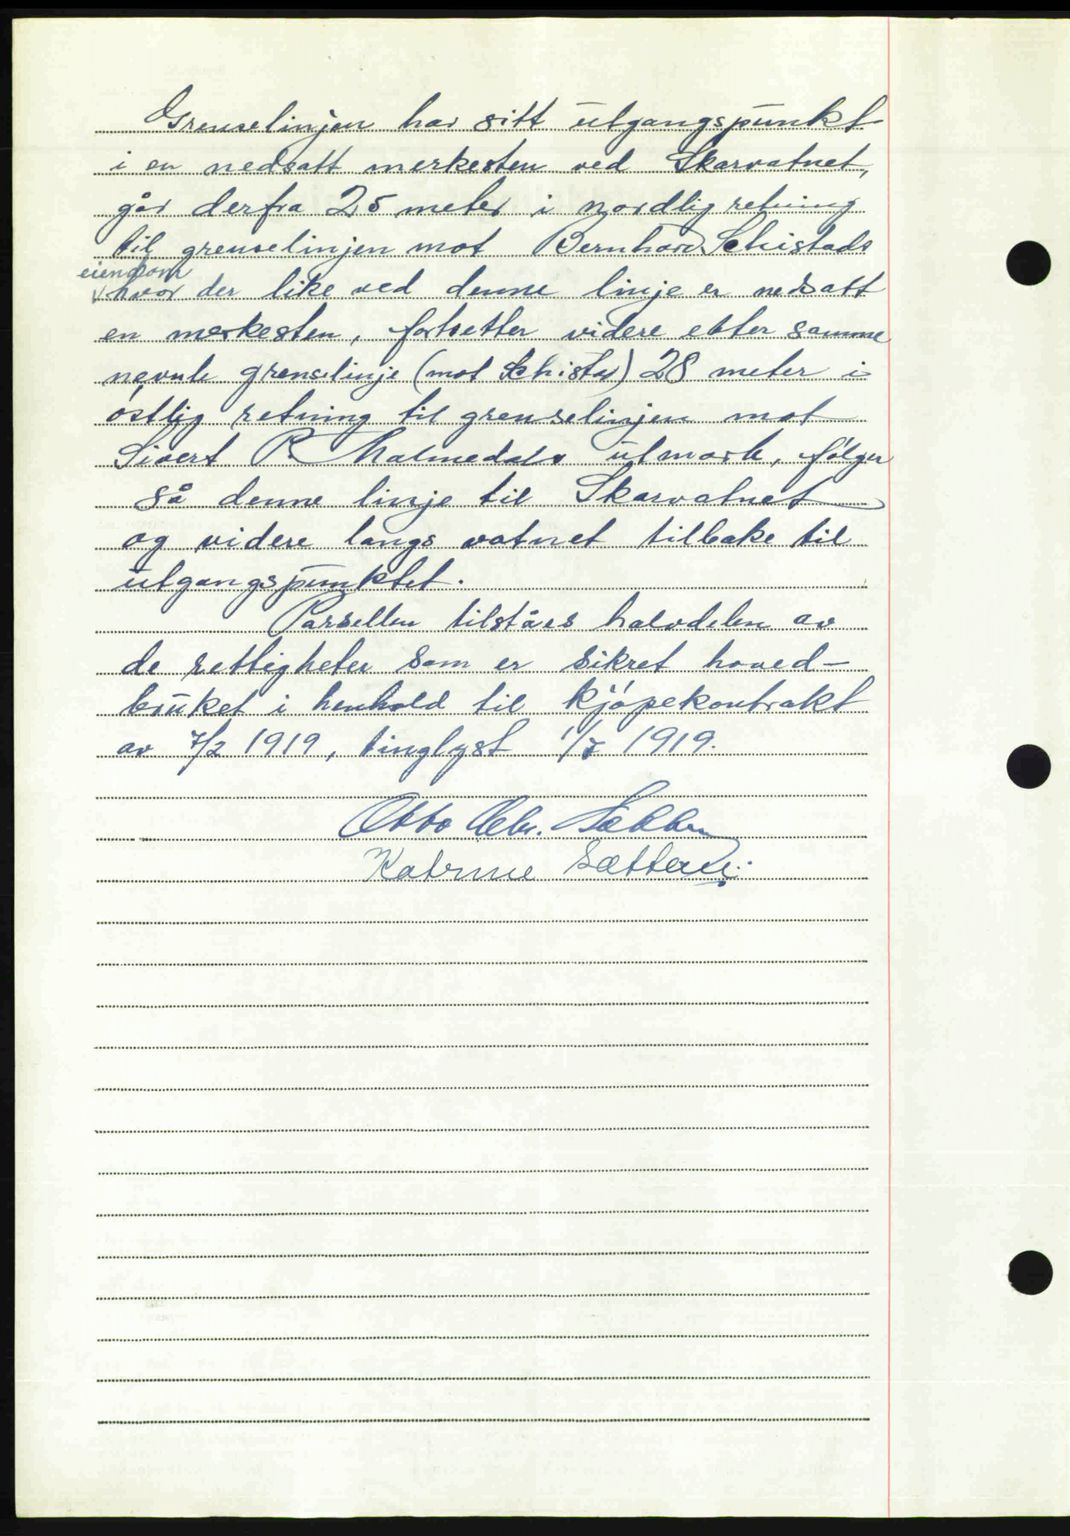 Grenselinjen har sitt utgangspunkt
i en nedsatt merkesten ved Skarvatnet,
går derfra 25 meter i nordlig retning
til grenselinjen mot Bernhard Schistads
eiendom
hvor der like ved denne linje er nedsatt
en merkesten, fortsetter videre etter samme
nevnte grenselinje (mot Schistad) 28 meter i
østlig retning til grenselinjen mot
Sivert P. Malmedals utmark, følger
så denne linje til Skarvatnet
og videre langs vatnet tilbake til
utgangspunktet.
Parsellen tilståes halvdelen av
de rettigheter som er sikret hoved-
bruket i henhold til kjøpekontrakt
av 7/2 1919, tinglyst 1/ 1919.
Otto
Katrine Sætteren